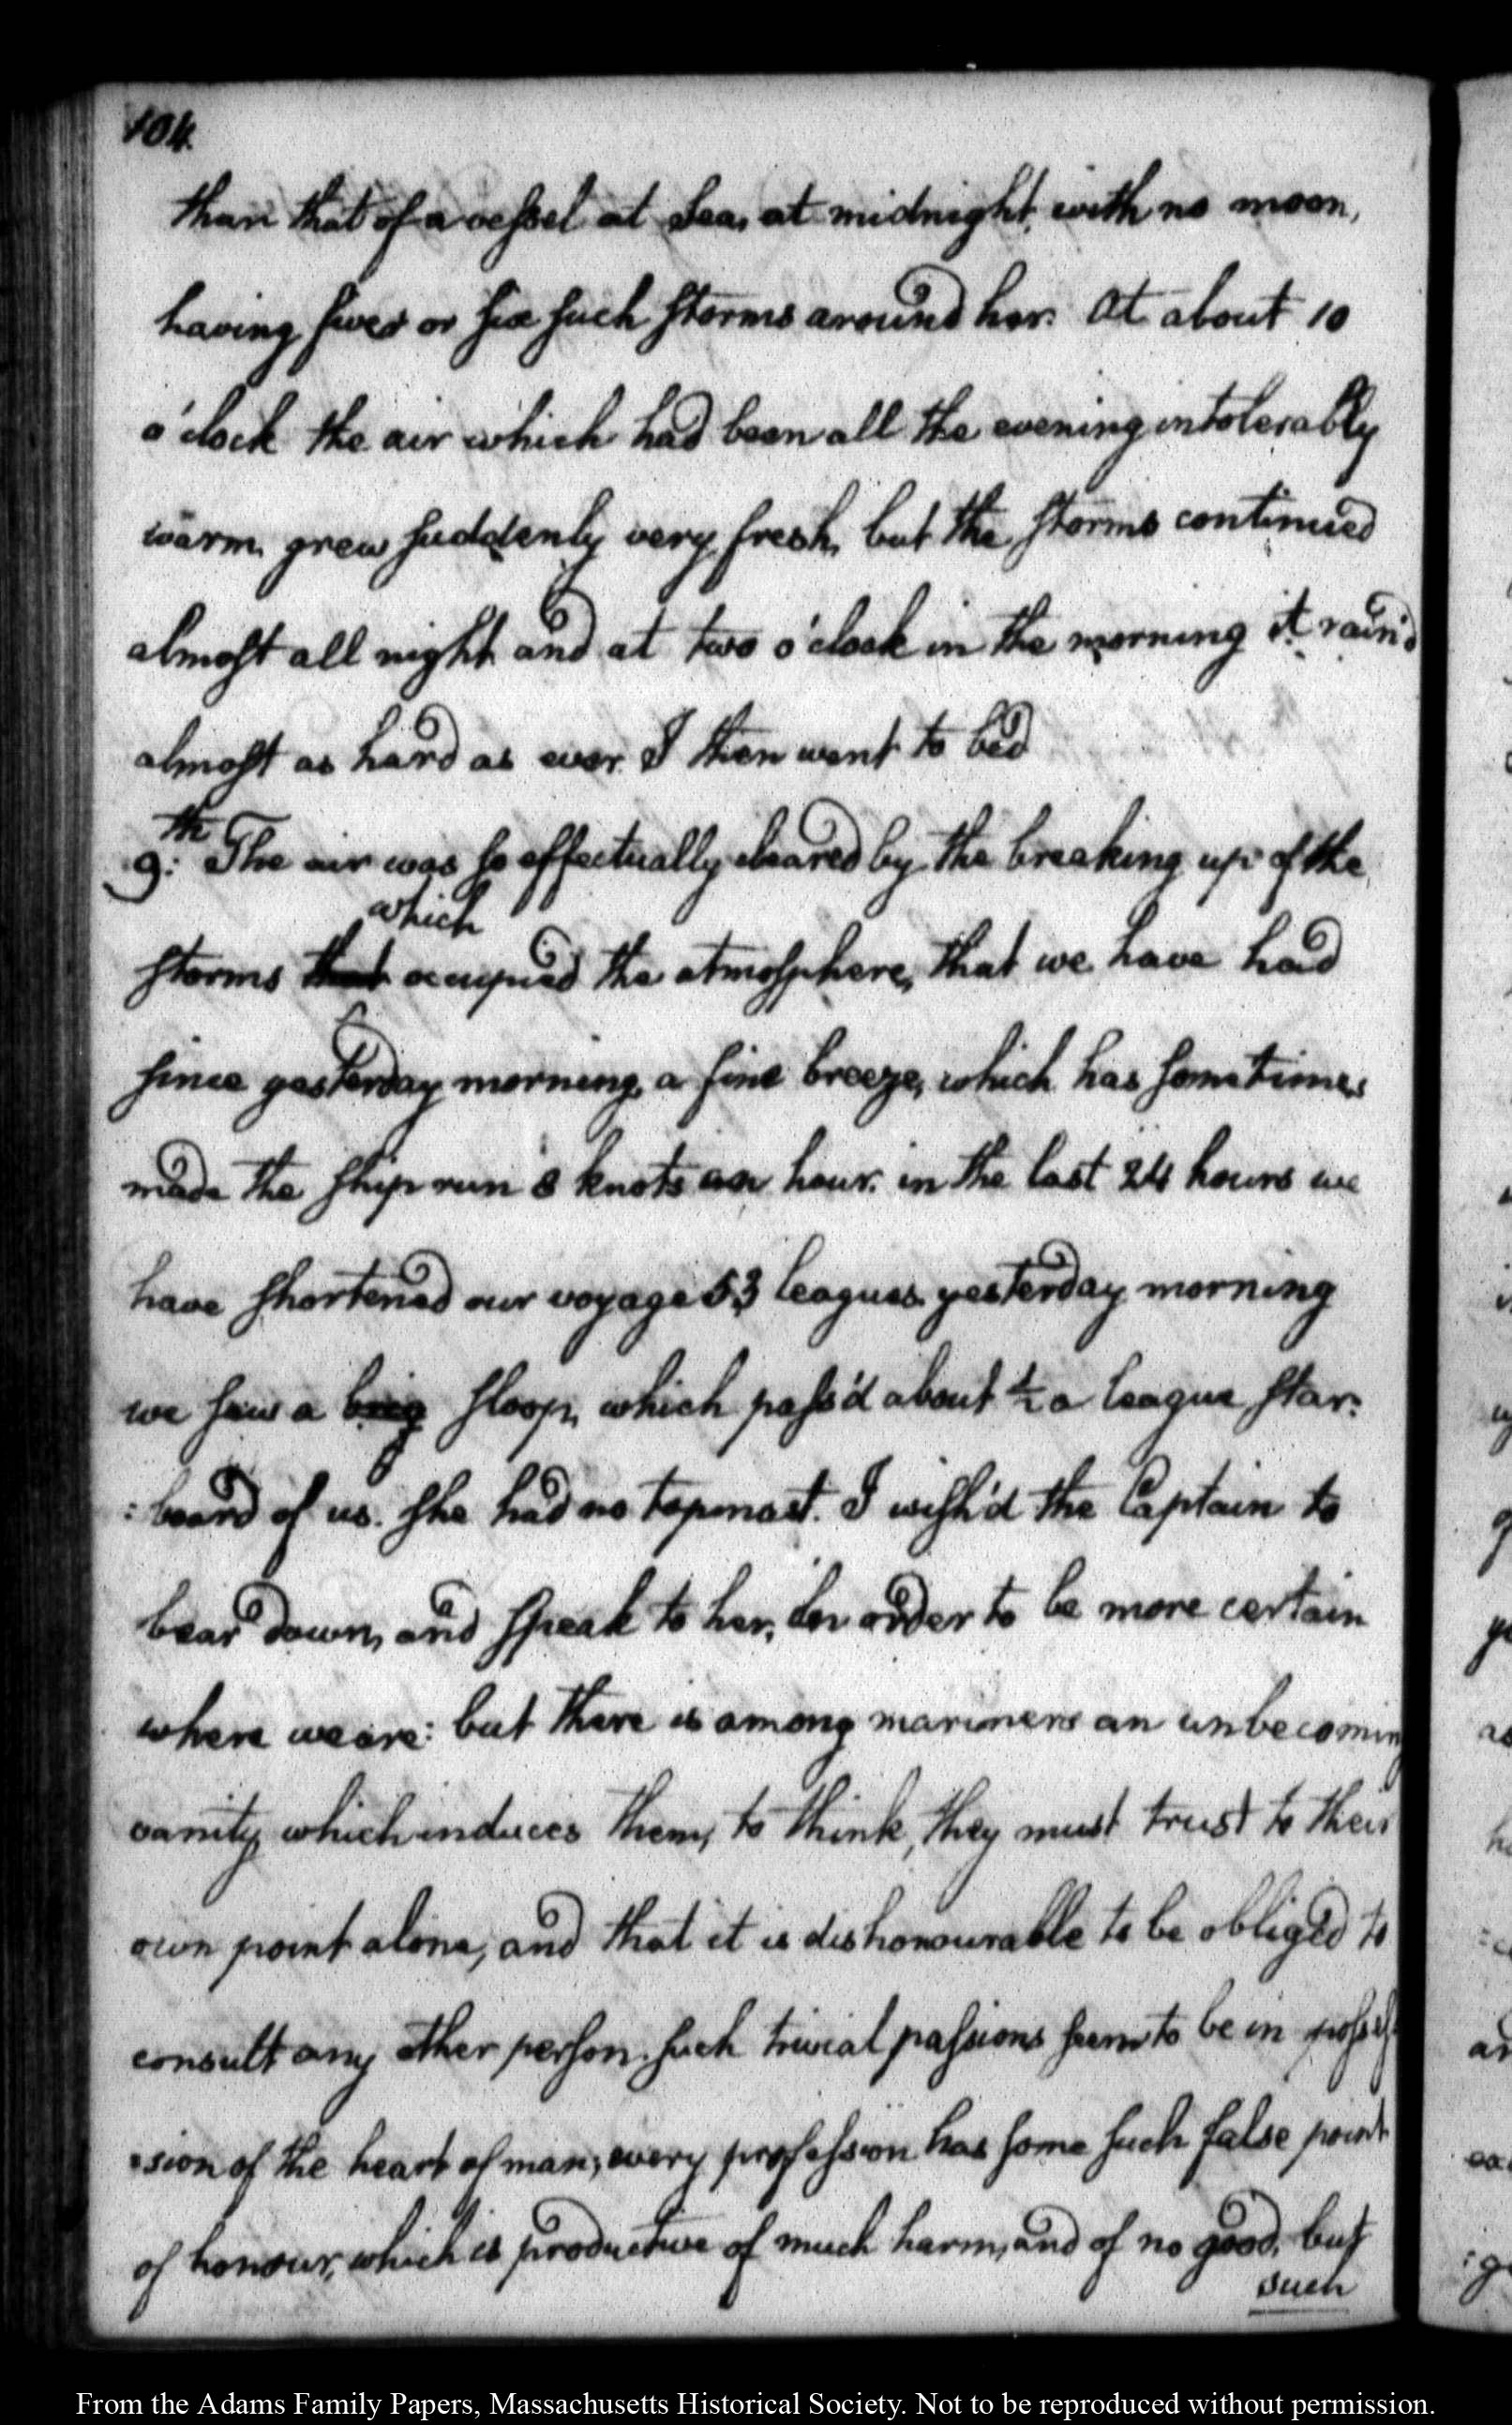 104.
than that of a vessel at Sea, at midnight, with no moon,
having five or six such storms around her. At about 10
o'clock the air which had been all the evening intolerably
warm, grew suddenly very fresh, but the storms continued
almost all night and at two o'clock in the morning it rain'd
almost as hard as ever. I then went to bed
9th: The air was so effectually cleared by the breaking up of the
which
storms that occupied the atmosphere, that we have had
since yesterday morning, a fine breeze, which has sometimes
made the ship run 8 knots an hour. in the last 24 hours we
have shortened our voyage 53 leagues. yesterday morning
we saw a brig sloop, which pass'd about ½ a league star:
:board of us. She had no topmast. I wish'd the Captain to
bear down, and speak to her, in order to be more certain
where we are: but there is among mariners an unbecoming
vanity, which induces them, to think, they must trust to their
own point alone, and that it is dishonourable to be obliged to
consult any other person. such trivial passions seem to be in posses
:sion of the heart of man; every profession has some such false point
of honour, which is productive of much harm, and of no good, but
such
From the Adams Family Papers, Massachusetts Historical Society. Not to be reproduced without permission.